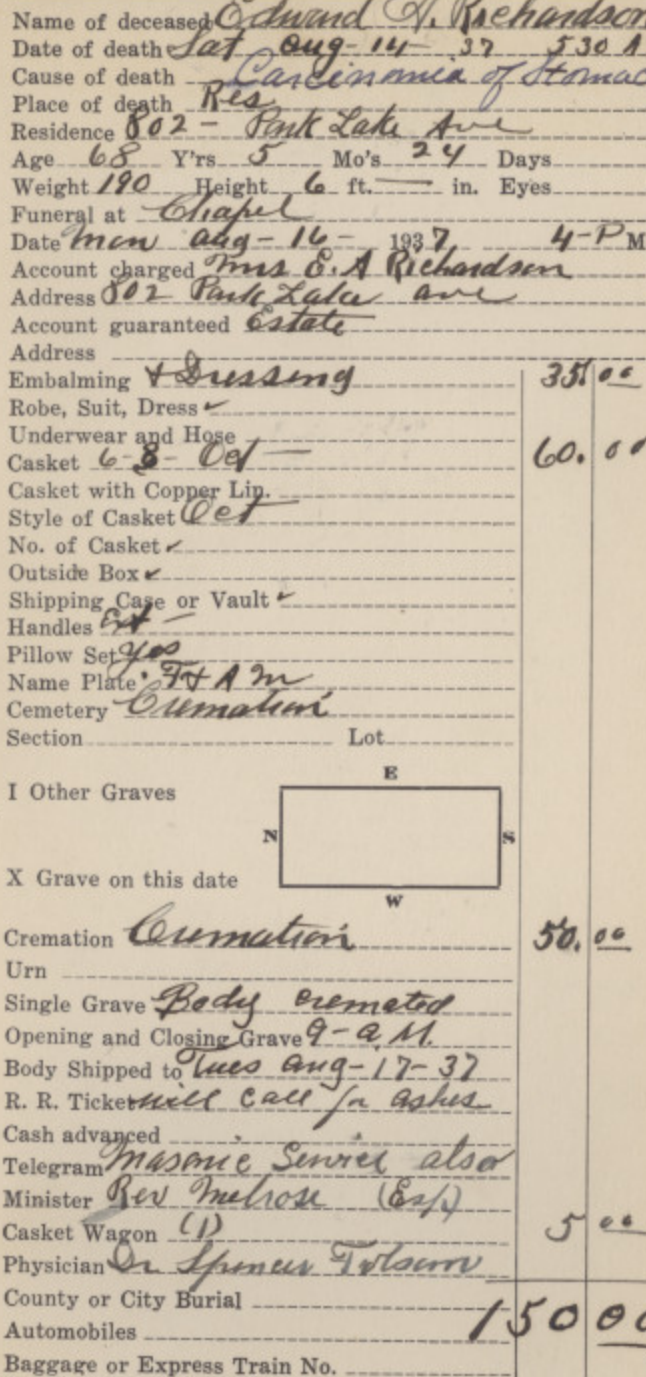 Name of deceased Edward A. Richardson
Date of death Sat Aug-14-37 530 A
Cause of death Carcinomia of Stomac
Place of death Res
Residence 802 - Park Lake Ave
Age 68 Y'rs 5 Mo's 24 Days
Weight 190 Height 6 ft. — in. Eyes
Funeral at Chapel
Date Mon Aug-16- 1937 4-PM
Account charged Mrs E. A Richardson
Address 802 Park Lake Ave
Account guaranteed Estate
Address
Embalming & Dressing 35.00
Robe, Suit, Dress ✓
Underwear and Hose
Casket 6-8- Oct — 60.00
Casket with Copper Lin.
Style of Casket Oct
No. of Casket ✓
Outside Box ✓
Shipping Case or Vault ✓
Handles Ext —
Pillow Set yes
Name Plate. F & A M
Cemetery Cremation
Section Lot
E
I Other Graves
N S
X Grave on this date
W
Cremation Cremation 50.00
Urn
Single Grave Body cremated
Opening and Closing Grave 9-A.M.
Body Shipped to Tues Aug-17-37
R. R. Ticket will call for ashes
Cash advanced
Telegram Masonic Service also
Minister Rev Melrose (Esp)
Casket Wagon (1) 5 00
Physician Dr Spencer Folsom
County or City Burial
150 00
Automobiles
Baggage or Express Train No.